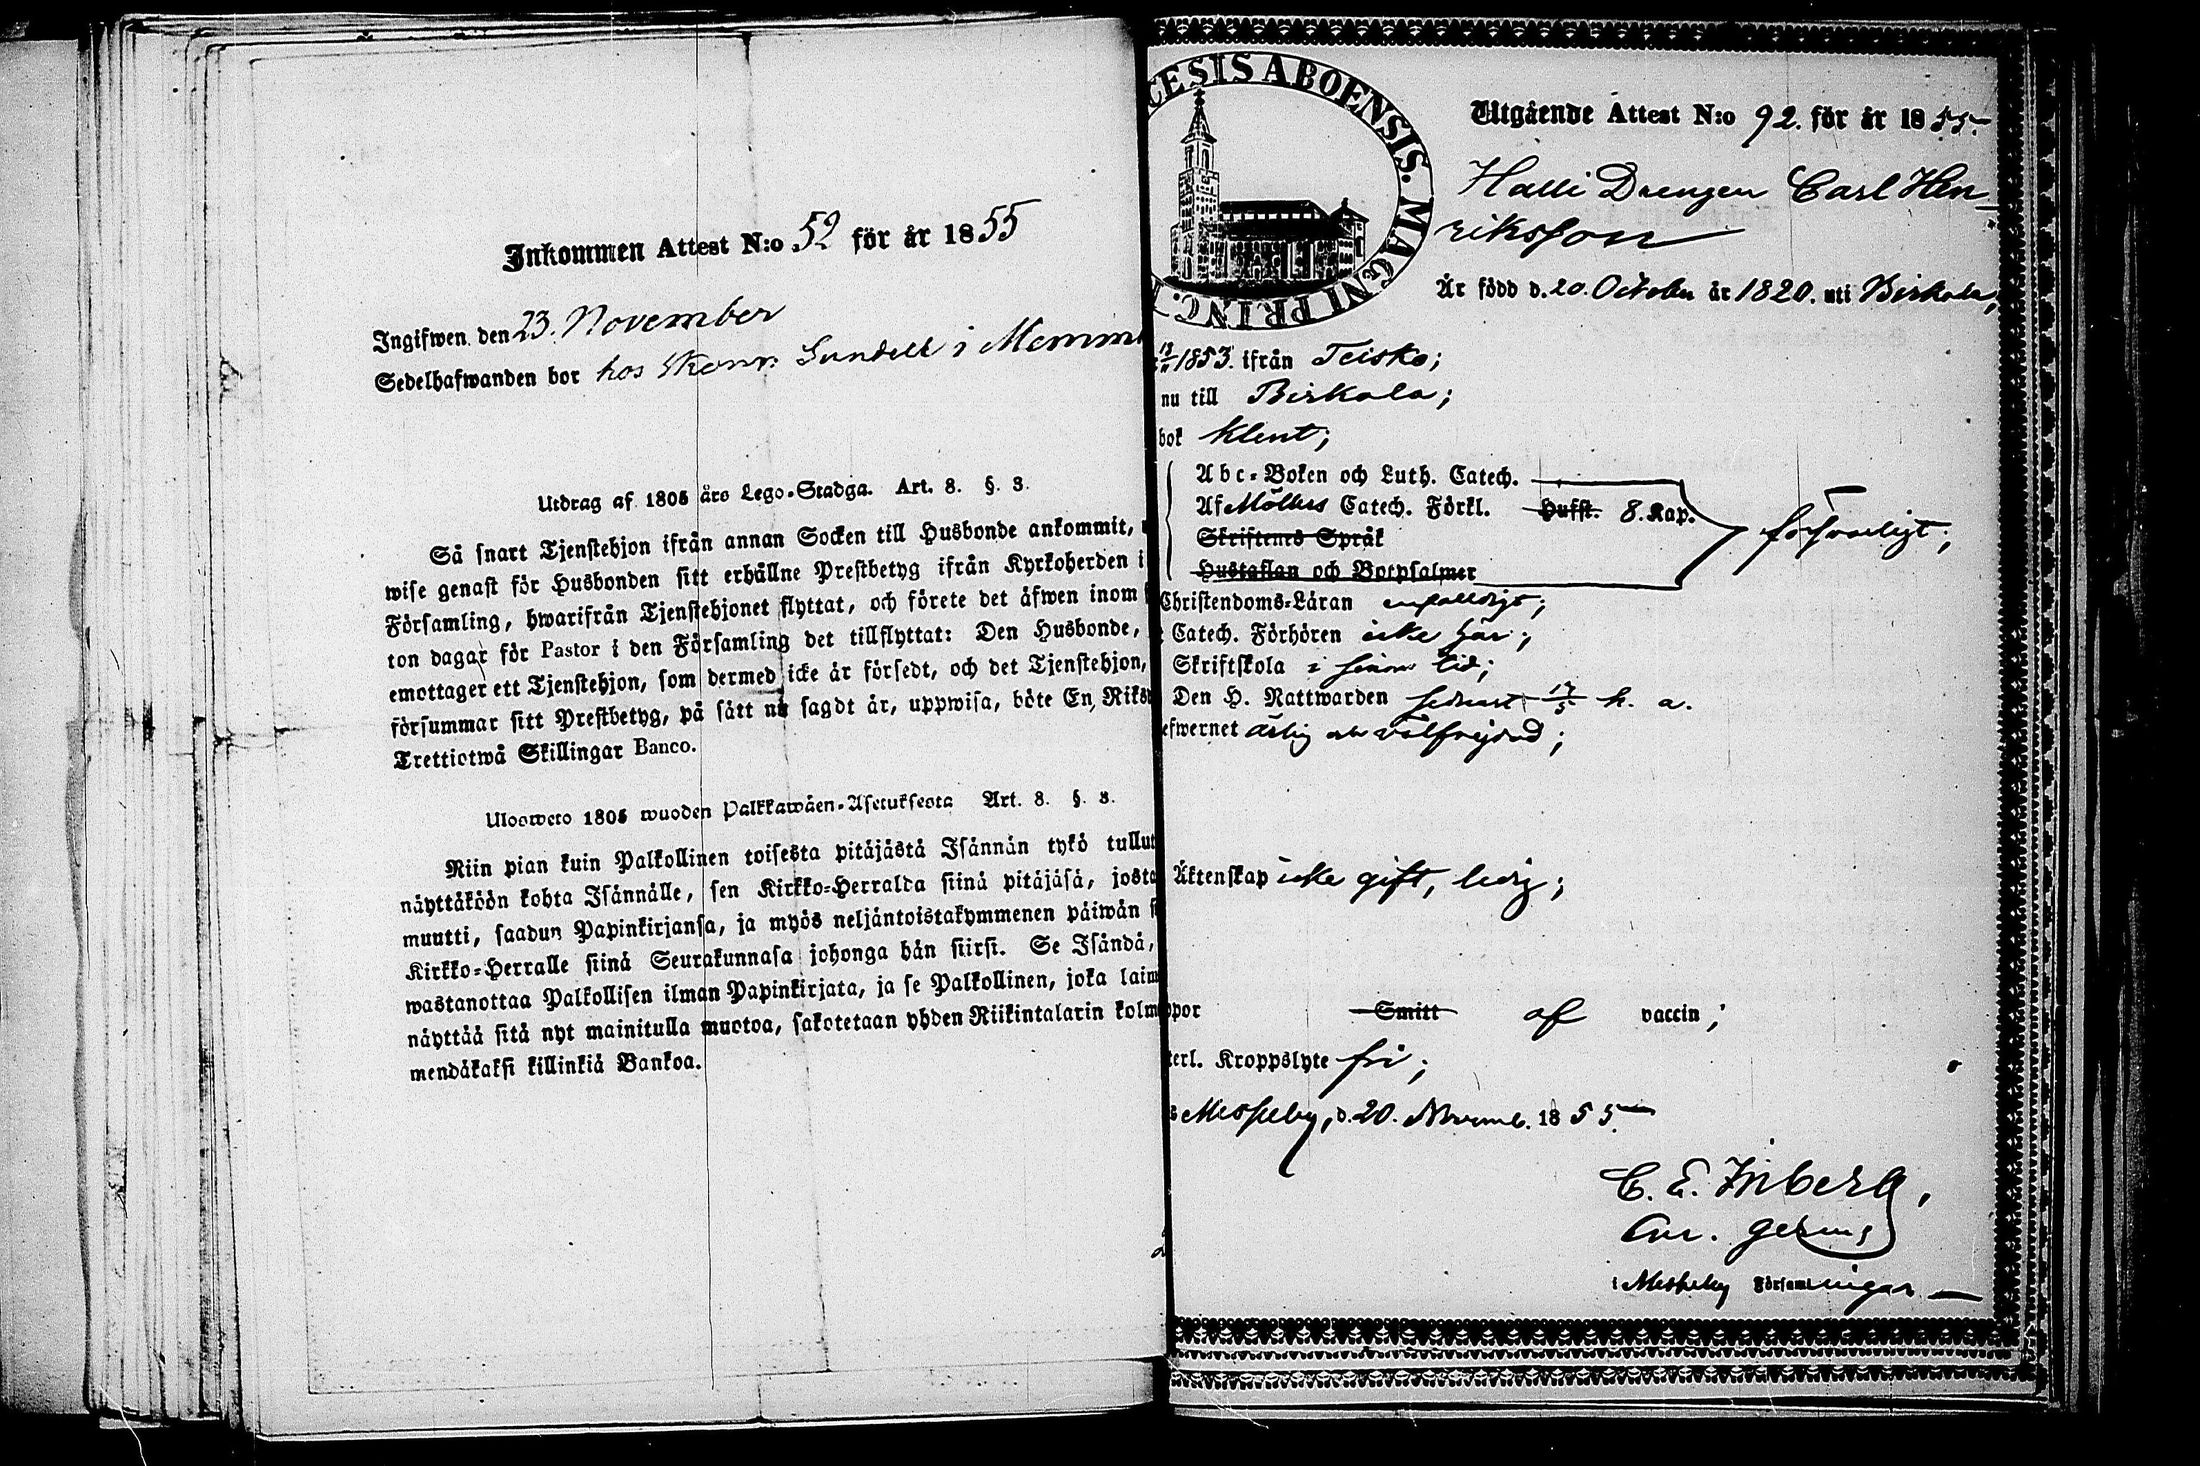 Inkommen Attest N:o 52 för år 1855
Ingifwen den 23. November
Sedelhafwanden bor hos Skom. Sundell i Memm
Utdrag af 1805 års Lego-Stadga. Art. 8. §. 3.
Så snart Tjenstehjon ifrån annan Socken till Husbonde ankommit,
wise genast för Husbonden sitt erhållne Prestbetyg ifrån Kyrkoherden i
Församling, hwarifrån Tjenstehjonet flyttat, och förete det äfwen inom
ton dagar för Pastor i den Församling det tillflyttat: Den Husbonde,
emottager ett Tjenstehjon, som dermed icke är försedt, och det Tjenstehjon,
försummar sitt Prestbetyg, på sätt nu sagdt är, uppwisa, böte En Riks
Trettiotwå Skillingar Banco.
Ulosweto 1805 wuoden Palkkawäen-Asetuksesta Art. 8. §. 3.
Niin pian kuin Palkollinen toisesta pitäjästä Isännän tykö tullut
näyttäköön kohta Isännälle, sen Kirkko-Herralda siinä pitäjäsä, josta
muutti, saadun Papinkirjansa, ja myös neljäntoistakymmenen päiwän s
Kirkko-Herralle siinä Seurakunnasa johonga hän siirsi. Se Isändä,
wastanottaa Palkollisen ilman Papinkirjata, ja se Palkollinen, joka laim
näyttää sitä nyt mainitulla muotoa, sakotetaan yhden Riikintalarin kolm
mendäkaksi killinkiä Bankoa.
CESIS ABOENSIS. MAGNI PRINC.
Utgående Attest N:o 92. för år 1855.
Halli Drengen Carl Hen-
riksson
Är född d. 20. October år 1820. uti Birkala,
1853. ifrån Teisko;
nu till Birkala;
bok klent;
Abc-Boken och Luth. Catech.
Af Möllers Catech. Förkl. Hufst. 8. Kap. försvarligt;
Skriftenes Språk
Hustaflan och Botpsalmer
Christendoms-Läran enfaldigt;
Catech. Förhören icke här;
Skriftskola i sinom tid;
Den H. Nattwarden sednast 17/5 h. a.
efwernet ärlig och välfrejdad;
Äktenskap icke gift, ledig;
ppor Smitt af vaccin;
terl. Kroppslyte fri;
Messuby, d. 20. Novemb. 1855
C. E. Inberg,
i Messuby Församlingar